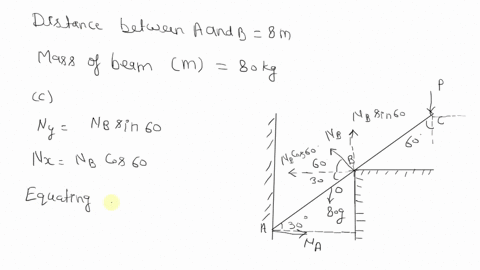 Distance between A and B = 8m
Mass of beam (m) = 80 kg
(c)
Ny = NB Sin 60
Nx = NB Cos 60
Equating
P
C
60
NB Sin 60
NB
NB Cos 60
60
30
B
80g
A
30°
NA